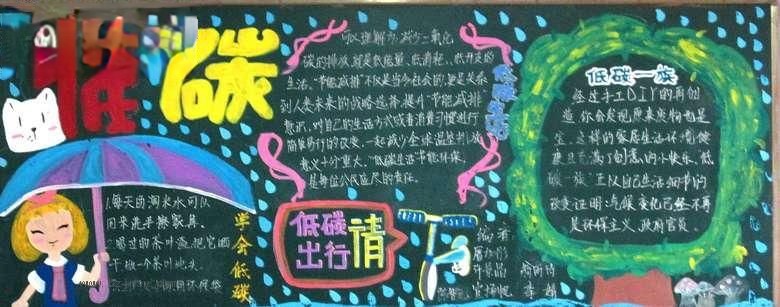 碳
可以理解为:减少二氧化
碳的排放,就是低能量、低消耗、低开支的
生活。"节能减排"不仅是当今社会的,更是关系
到人类未来的战略选择,提升"节能减排"
意识,对自己的生活方式或者消费习惯进行
简单易行的改变,一起减少全球温室气体
意义十分重大。"低碳生活"节能环保,
是每位公民应尽的责任。
低碳生活
低碳一族
经过手工DIY的再创
造,你会发现原来废物也是
宝。这样的家居生活环境健
康且充满了创意的小快乐,低
碳一族"正以自己生活细节的
改变证明:气候变化已经不再
是环保主义、政府官员
1.每天的淘米水可以
用来洗手擦家具。
2.喝过的茶叶渣,把它晒
干,做一个茶叶枕头
学会低碳
低碳
出行
请
编者